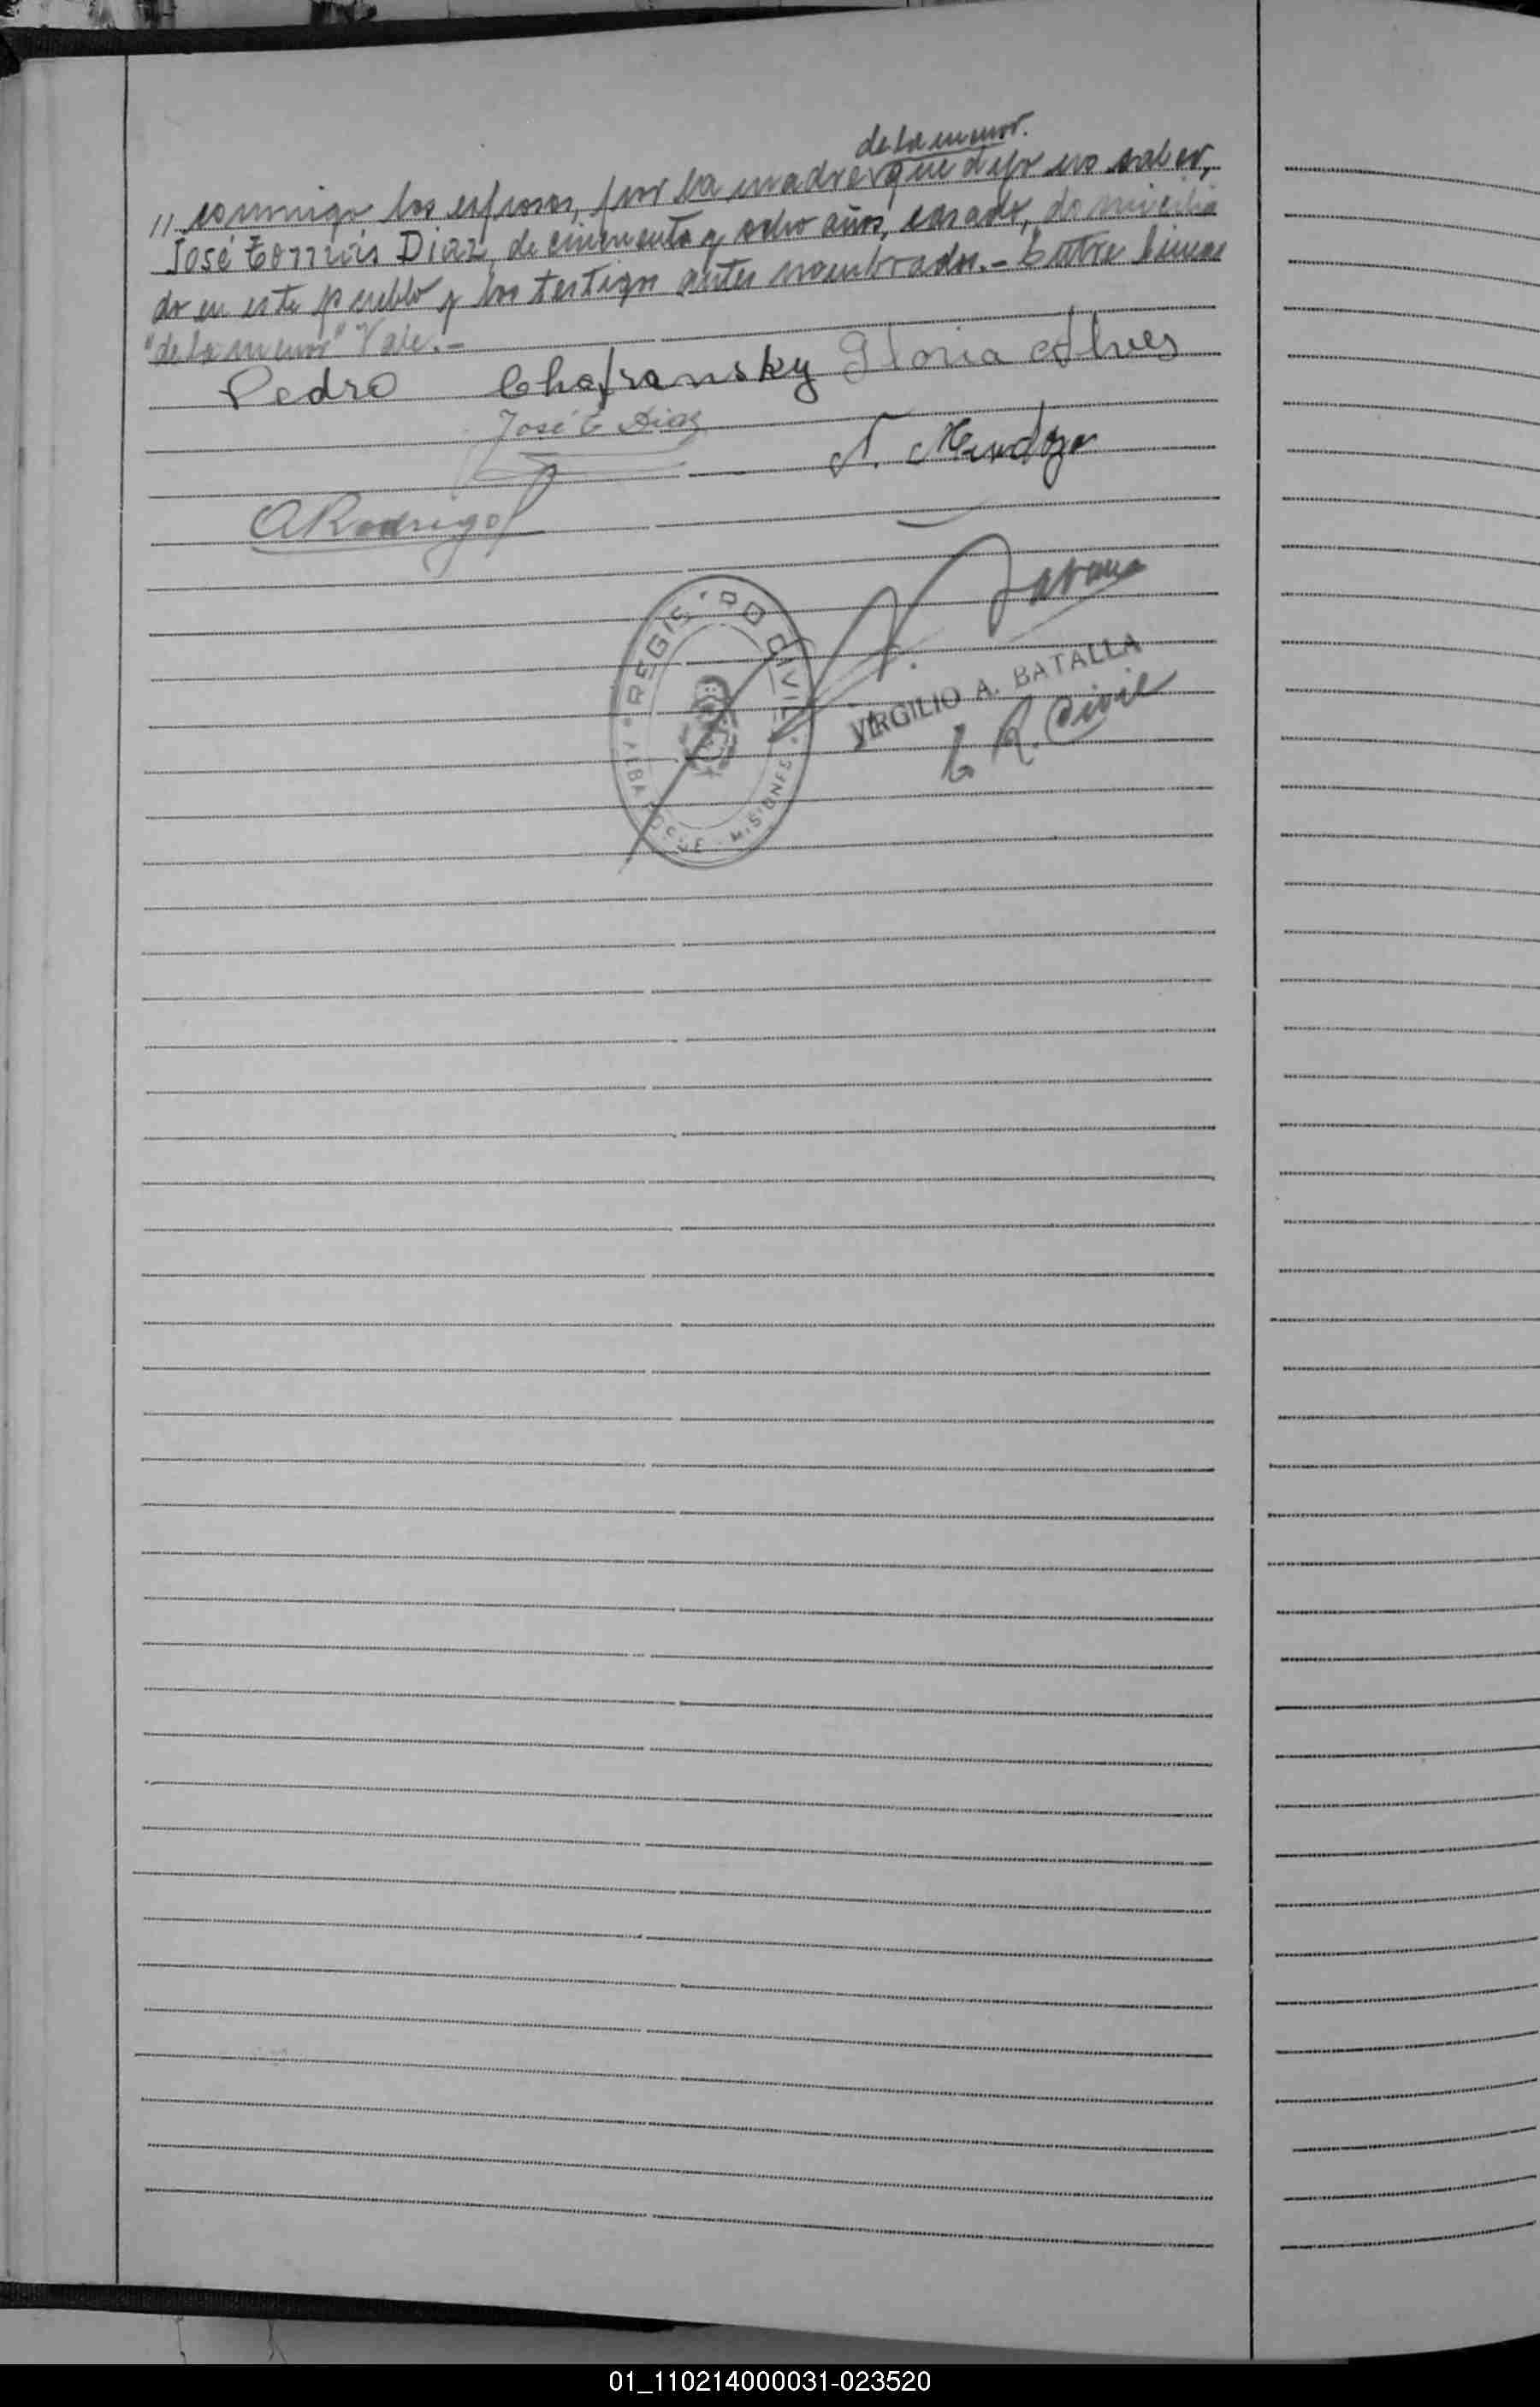 de la menor.
// conmigo los esposos, por la madre que dijo no saber,
José Tomás Diaz, de cincuenta y ocho años, casado, domicilia
do en este pueblo y los testigos antes nombrados.- Entre lineas
"de la menor" Vale.-
Pedro Chafransky Gloria Alves
José T Diaz
N. Mendoza
ARodrigo
REGISTRO CIVIL
MISIONES
VIRGILIO A. BATALLA
R. Civil
01_110214000031-023520